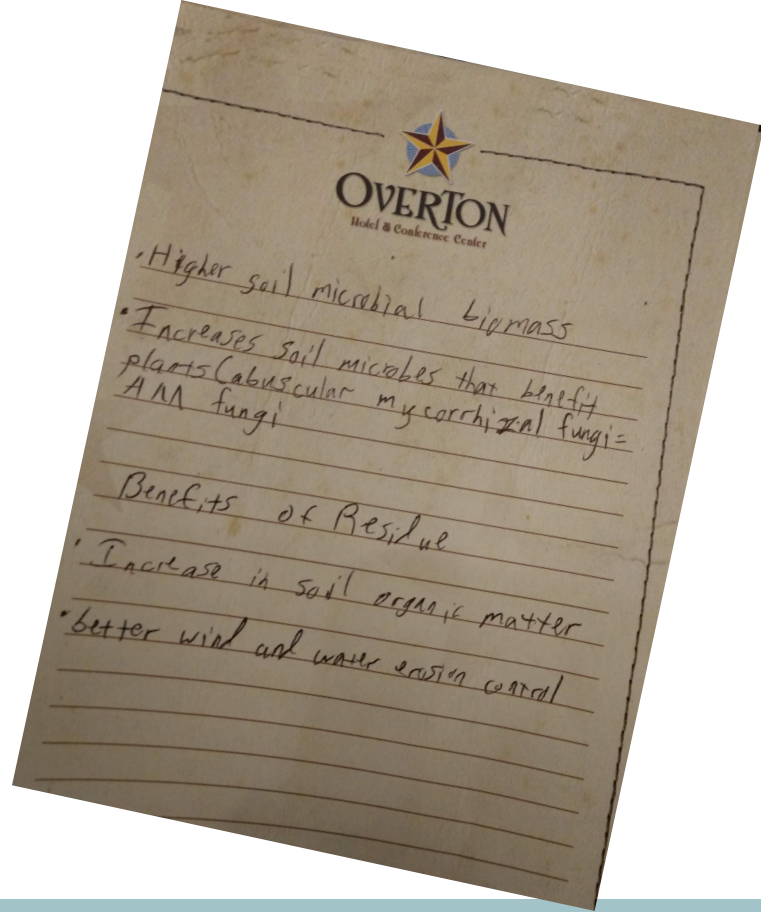 OVERTON
Hotel & Conference Center
• Higher soil microbial biomass
• Increases soil microbes that benefit
plants (abuscular mycorrhizal fungi =
AM fungi
Benefits of Residue
• Increase in soil organic matter
• better wind and water erosion control